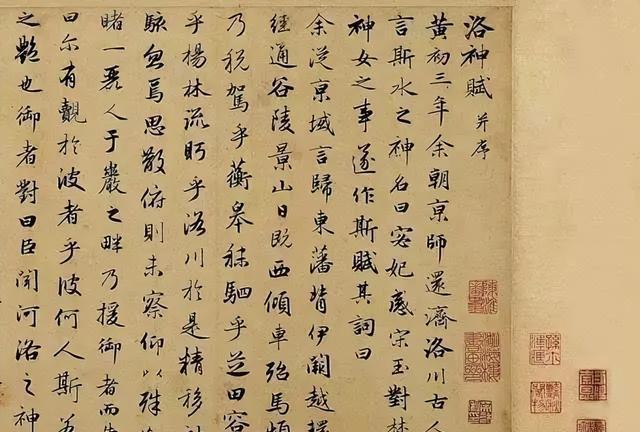 洛神賦 并序
黄初三年余朝京師還濟洛川古人
言斯水之神名曰宓妃感宋玉對楚
神女之事遂作斯賦其詞曰
余從京域言歸東藩背伊闕越轘
經通谷陵景山日既西傾車殆馬煩
乃税駕乎蘅皋秣駟乎芝田容
乎楊林流眄乎洛川於是精移神
駭忽焉思散俯則未察仰以殊
睹一麗人于巖之畔乃援御者而告
曰尔有覿於彼者乎彼何人斯若
之艷也御者對曰臣聞河洛之神